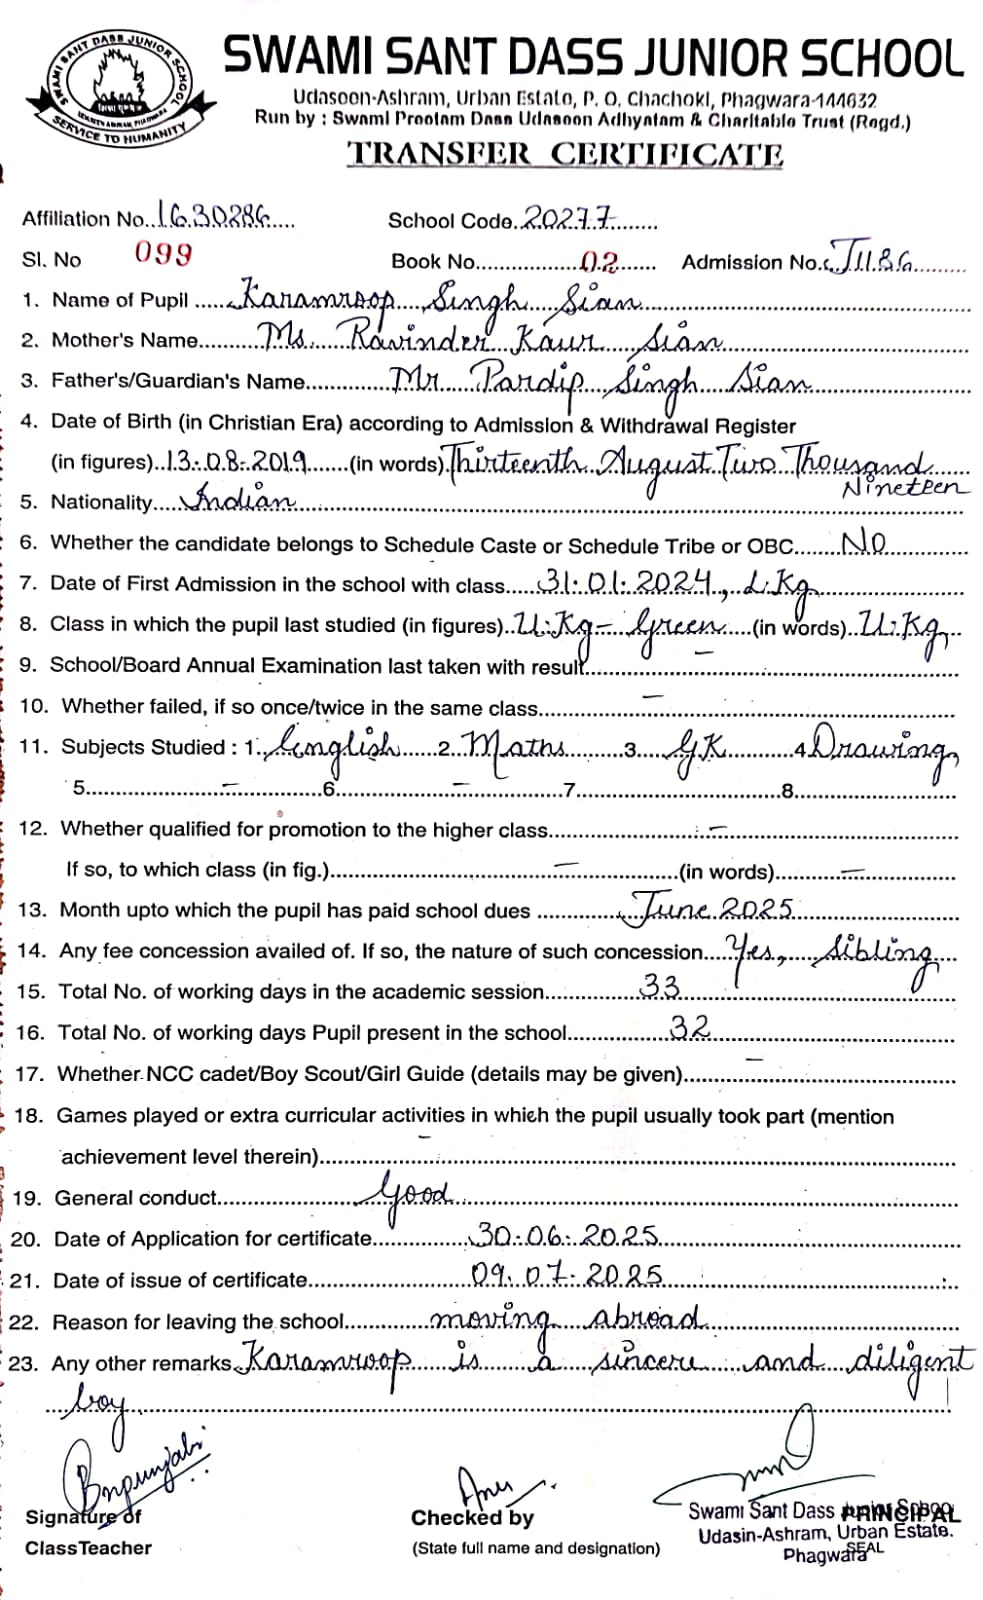 SWAMI SANT DASS JUNIOR SCHOOL
SERVICE TO HUMANITY
SWAMI SANT DASS JUNIOR SCHOOL
Udasoon-Ashram, Urban Estato, P. O. Chachoki, Phagwara-144632
Run by : Swami Prootam Dass Udasoon Adhyatam & Charitablo Trust (Rogd.)
TRANSFER CERTIFICATE
Affiliation No. 1630286 School Code. 20277
Sl. No 099 Book No. 02 Admission No. J1186
1. Name of Pupil Karamroop Singh Sian
2. Mother's Name Ms. Ravinder Kaur Sian
3. Father's/Guardian's Name Mr Pardip Singh Sian
4. Date of Birth (in Christian Era) according to Admission & Withdrawal Register
(in figures) 13.08.2019 (in words) Thirteenth August Two Thousand
Nineteen
5. Nationality Indian
6. Whether the candidate belongs to Schedule Caste or Schedule Tribe or OBC No
7. Date of First Admission in the school with class 31.01.2024, L.Kg
8. Class in which the pupil last studied (in figures) U.Kg - Green (in words) U.Kg
9. School/Board Annual Examination last taken with result –
10. Whether failed, if so once/twice in the same class –
11. Subjects Studied : 1. English 2. Maths 3. GK 4 Drawing
5. – 6. – 7. 8.
12. Whether qualified for promotion to the higher class –
If so, to which class (in fig.) – (in words) –
13. Month upto which the pupil has paid school dues June 2025
14. Any fee concession availed of. If so, the nature of such concession Yes, Sibling
15. Total No. of working days in the academic session 33
16. Total No. of working days Pupil present in the school 32
17. Whether NCC cadet/Boy Scout/Girl Guide (details may be given) –
18. Games played or extra curricular activities in which the pupil usually took part (mention
achievement level therein) –
19. General conduct Good
20. Date of Application for certificate 30.06.2025
21. Date of issue of certificate 09.07.2025
22. Reason for leaving the school moving abroad
23. Any other remarks Karamroop is a sincere and diligent
boy
Signature of Checked by Swami Sant Dass PRINCIPAL
ClassTeacher (State full name and designation) Udasin-Ashram, Urban Estate.
Phagwara SEAL